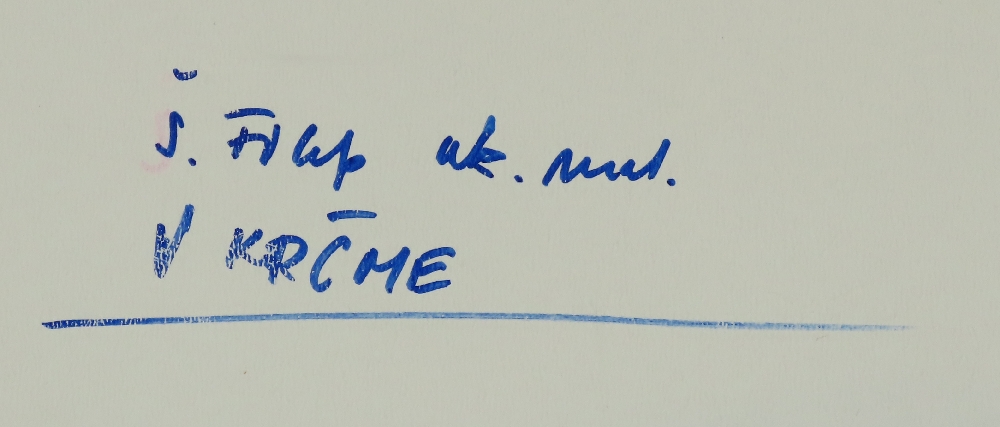 Š. Filip ak. mal.
V KRČME